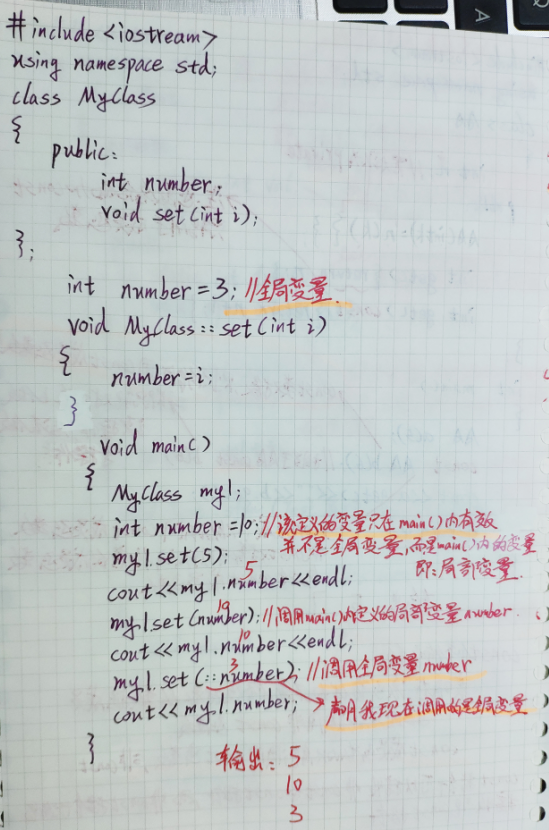 #include <iostream>
using namespace std;
class MyClass
{
public:
int number;
void set(int i);
};
int number = 3; //全局变量.
void MyClass::set(int i)
{
number=i;
}
void main()
{
MyClass my1;
int number =10; //该定义的变量只在main()内有效
并不是全局变量,而是main()内的变量
即:局部变量.
my1.set(5);
5
cout<<my1.number<<endl;
10
my1.set(number); //调用main()内定义的局部变量number.
10
cout<<my1.number<<endl;
3
my1.set(::number); //调用全局变量number
cout<<my1.number; 声明我现在调用的是全局变量
}
输出: 5
10
3